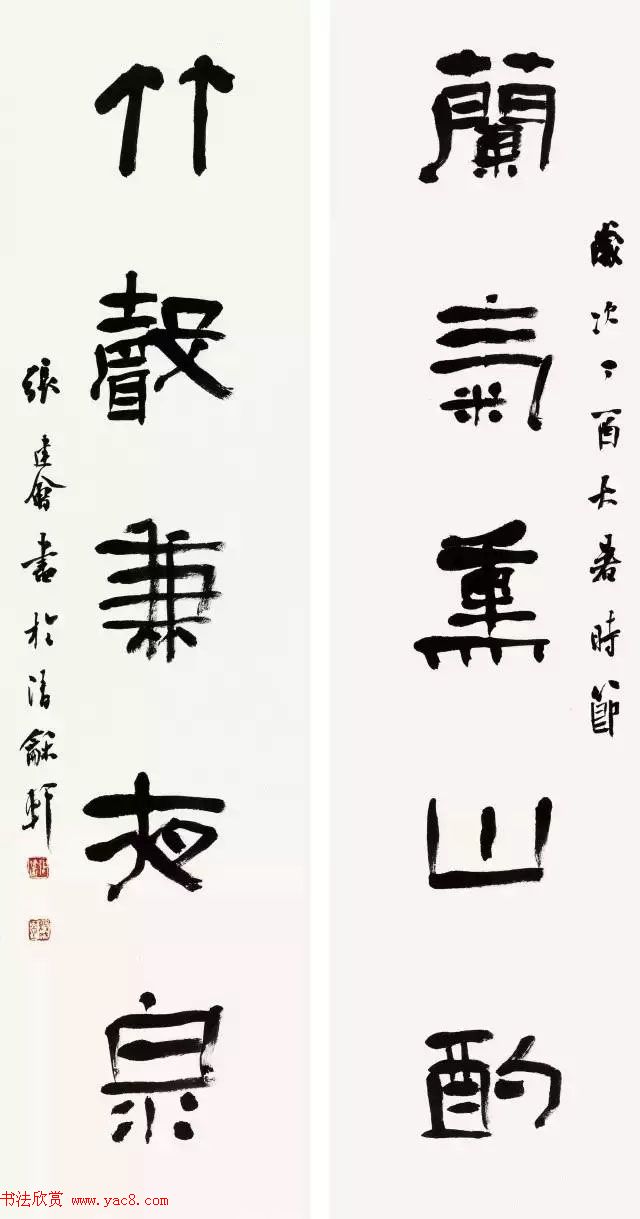 歲次丁酉大暑時節
蘭氣熏山酌
竹聲兼夜泉
張建會書於清龢軒
书法欣赏 www.yac8.com